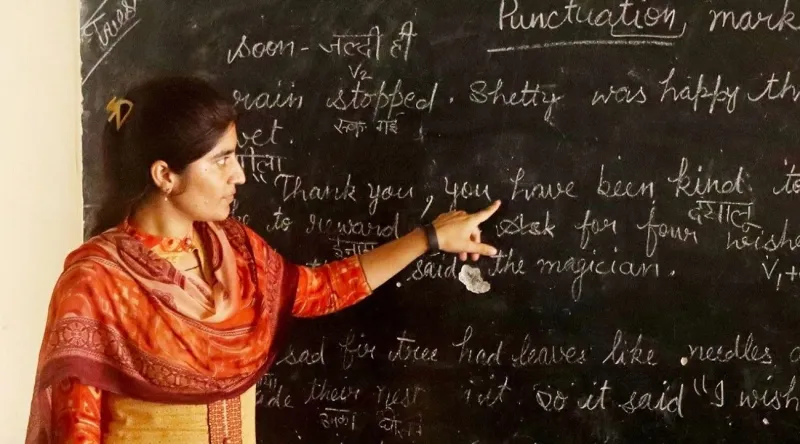 Punctuation mark
soon - जल्दी ही
V2
rain stopped. Shetty was happy th
रूक गई
wet.
गीला
"Thank you, you have been kind to
दयालु
e to reward Ask for four wishe
इनाम
said the magician. V1+
sad for tree had leaves like needles a
de their nest So it said "I wish